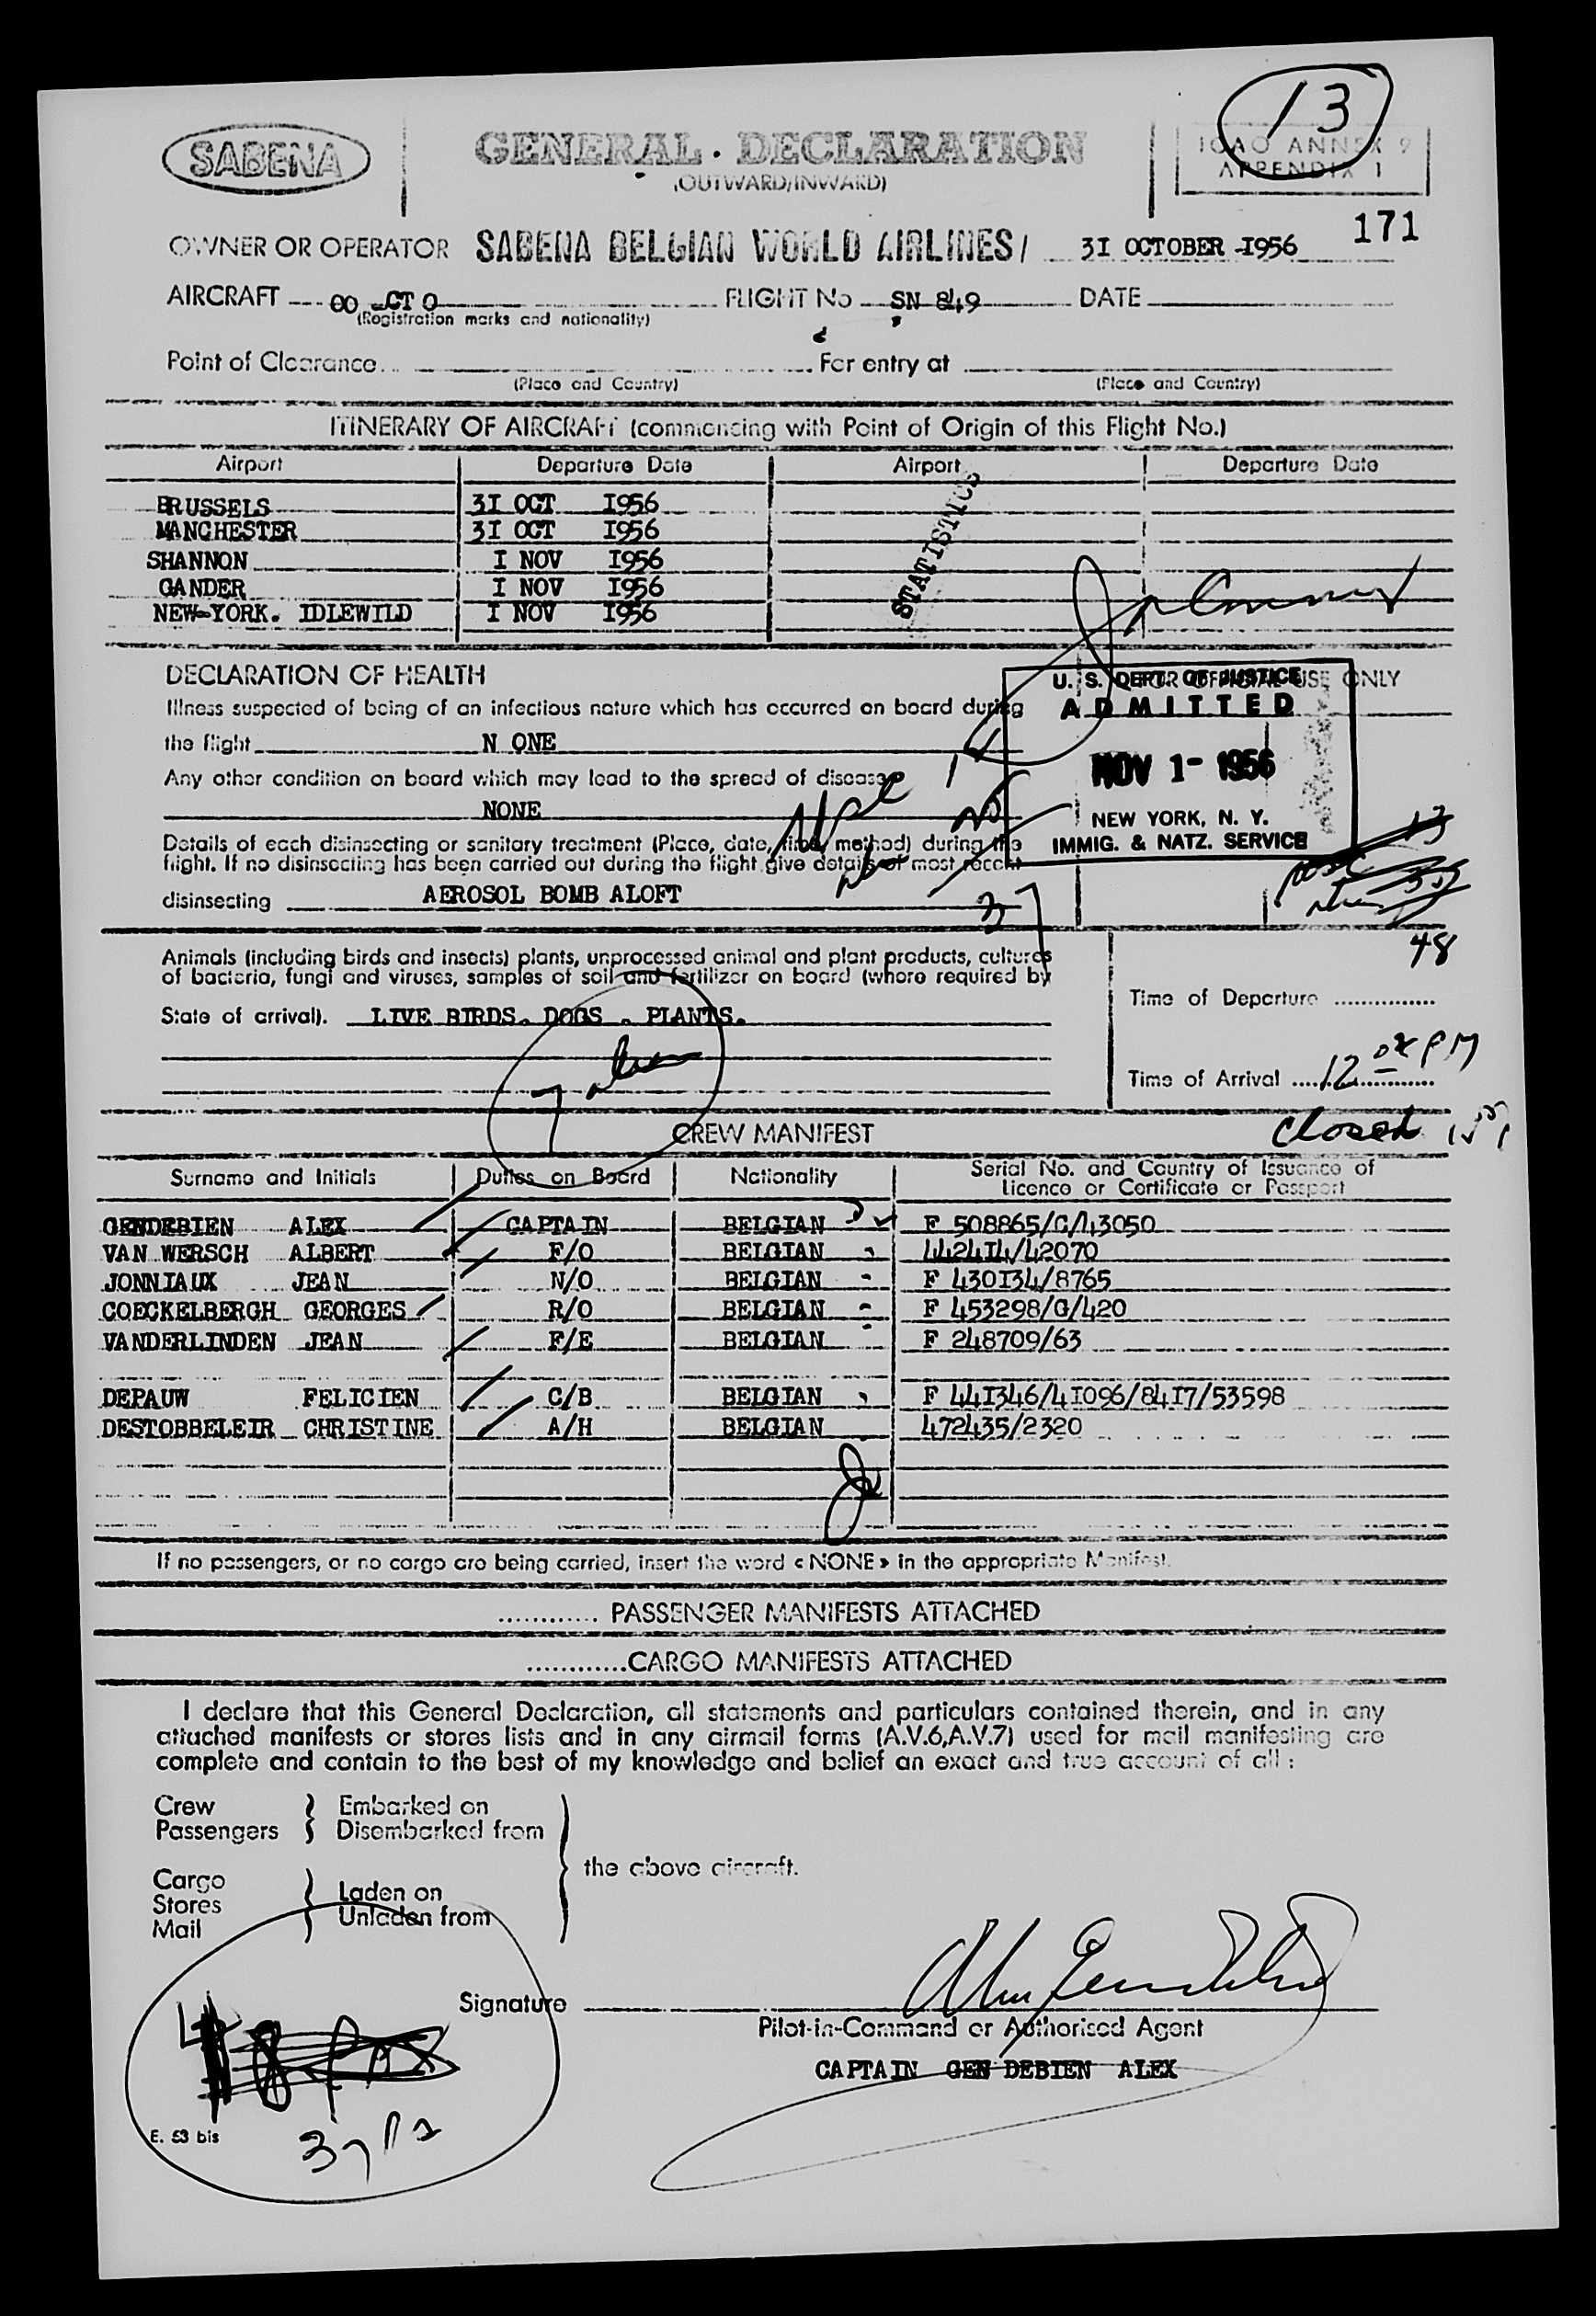 13
SABENA
GENERAL · DECLARATION
(OUTWARD/INWARD)
ICAO ANNEX 9
APPENDIX 1
171
OWNER OR OPERATOR SABENA BELGIAN WORLD AIRLINES/ 3I OCTOBER -I956
AIRCRAFT OO CT O FLIGHT No SN 849 DATE
(Registration marks and nationality)
Point of Clearance For entry at
(Place and Country) (Place and Country)
ITINERARY OF AIRCRAFT (commencing with Point of Origin of this Flight No.)
Airport Departure Date Airport Departure Date
BRUSSELS 3I OCT I956
MANCHESTER 3I OCT I956
SHANNON I NOV I956
GANDER I NOV I956
NEW-YORK. IDLEWILD I NOV I956
STATISTICS
DECLARATION OF HEALTH
FOR OFFICIAL USE ONLY
U. S. DEPT. OF JUSTICE
ADMITTED
NOV 1- 1956
NEW YORK, N. Y.
IMMIG. & NATZ. SERVICE
Illness suspected of being of an infectious nature which has occurred on board during
the flight N ONE
Any other condition on board which may lead to the spread of disease
NONE
Details of each disinsecting or sanitary treatment (Place, date, time, method) during the
flight. If no disinsecting has been carried out during the flight give details of most recent
disinsecting AEROSOL BOMB ALOFT
37
48
Animals (including birds and insects) plants, unprocessed animal and plant products, cultures
of bacteria, fungi and viruses, samples of soil and fertilizer on board (where required by
State of arrival). LIVE BIRDS. DOGS . PLANTS.
Time of Departure
Time of Arrival 12 PM
Closed
CREW MANIFEST
Surname and Initials Duties on Board Nationality Serial No. and Country of Issuance of
Licence or Certificate or Passport
GENDEBIEN ALEX CAPTAIN BELGIAN F 508865/C/43050
VAN WERSCH ALBERT F/O BELGIAN 4424I4/42070
JONNIAUX JEAN N/O BELGIAN F 430I34/8765
COECKELBERGH GEORGES R/O BELGIAN F 453298/G/420
VANDERLINDEN JEAN F/E BELGIAN F 248709/63
DEPAUW FELICIEN C/B BELGIAN F 44I346/4I096/84I7/53598
DESTOBBELEIR CHRISTINE A/H BELGIAN 472435/2320
If no passengers, or no cargo are being carried, insert the word « NONE » in the appropriate Manifest.
............ PASSENGER MANIFESTS ATTACHED
............CARGO MANIFESTS ATTACHED
I declare that this General Declaration, all statements and particulars contained therein, and in any
attached manifests or stores lists and in any airmail forms (A.V.6,A.V.7) used for mail manifesting are
complete and contain to the best of my knowledge and belief an exact and true account of all :
Crew Embarked on
Passengers Disembarked from
the above aircraft.
Cargo
Stores Laden on
Mail Unladen from
Signature
Pilot-in-Command or Authorised Agent
CAPTAIN GEN DEBIEN ALEX
E. 53 bis